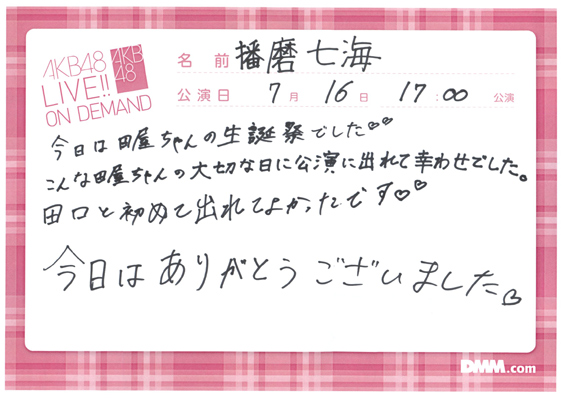 AKB48
LIVE!!
ON DEMAND
AKB
48
名前 播磨七海
公演日 7月 16日 17:00 公演
今日は田屋ちゃんの生誕祭でした♡♡
こんな田屋ちゃんの大切な日に公演に出れて幸わせでした。
田口と初めて出れてよかったです♡♡
今日はありがとうございました♡
DMM.com